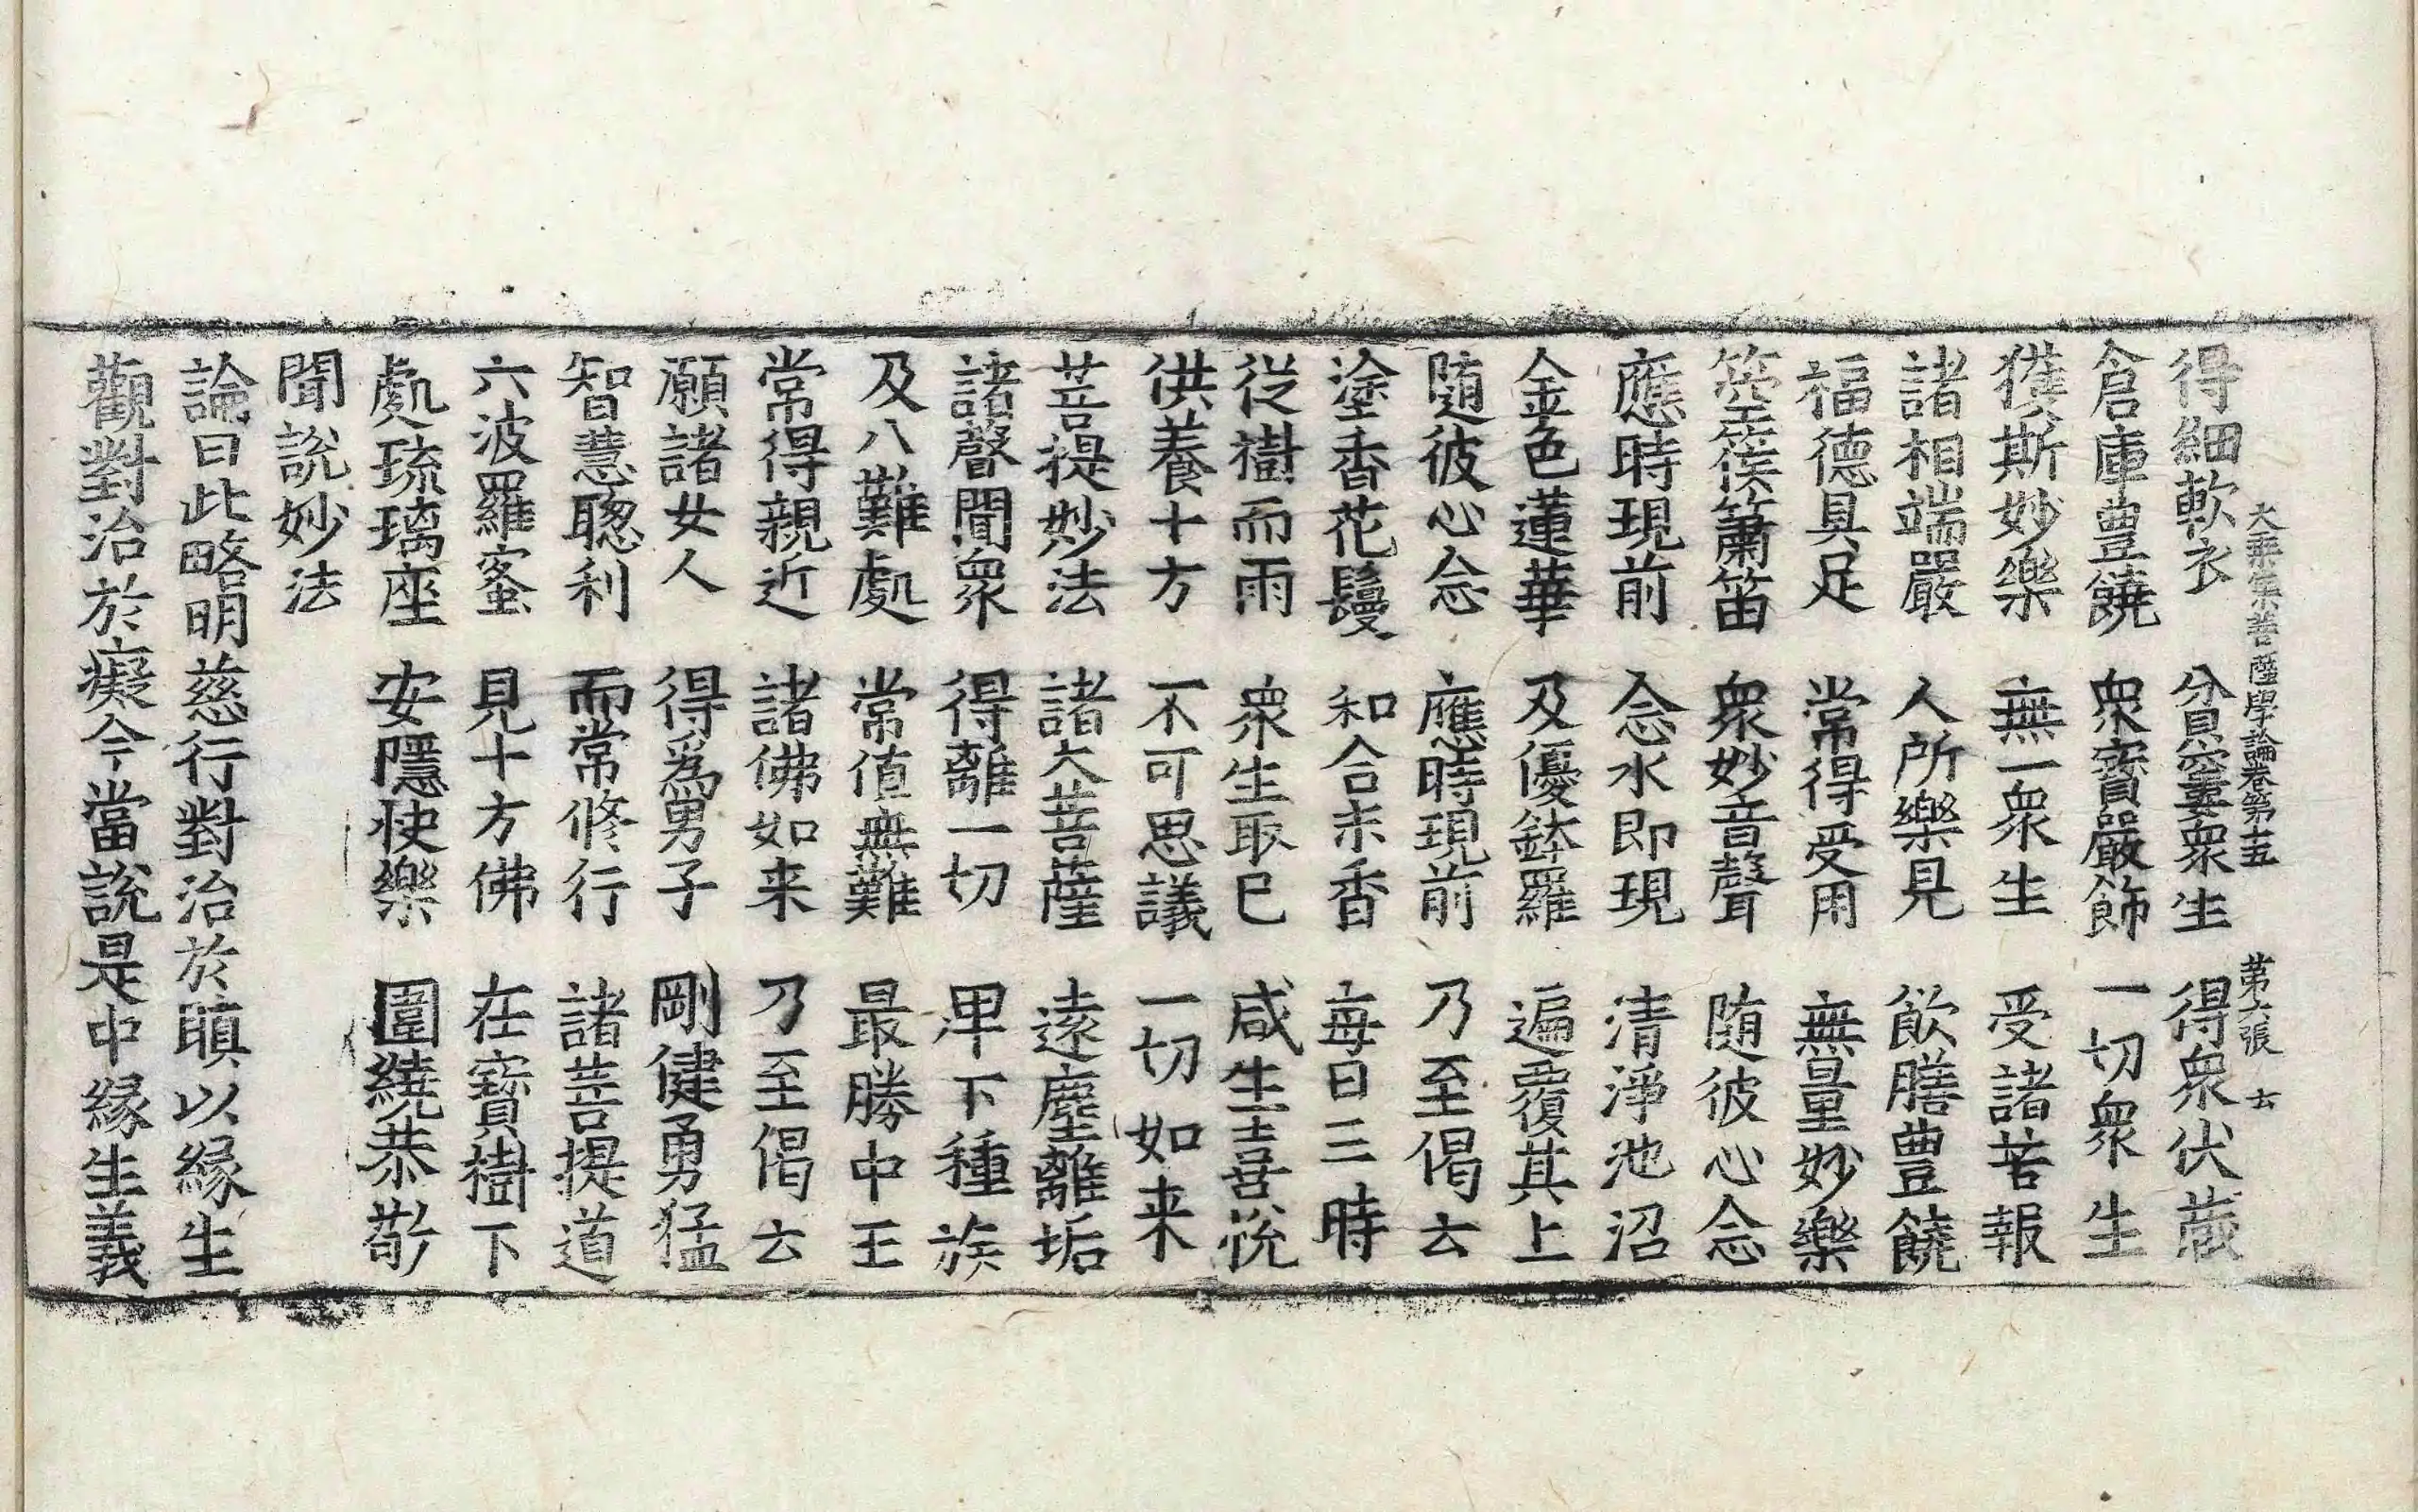 大乘集菩薩學論卷第十五 第六張 去
得細軟衣 貧窶衆生 得衆伏藏
倉庫豊饒 衆寳嚴飾 一切衆生
獲斯妙樂 無一衆生 受諸苦報
諸相端嚴 人所樂見 飲膳豊饒
福德具足 常得受用 無量妙樂
箜篌簫笛 衆妙音聲 随彼心念
應時現前 念水即現 清淨池沼
金色蓮華 及優鉢羅 遍覆其上
随彼心念 應時現前 乃至偈云
塗香花鬘 和合末香 毎日三時
從樹而雨 衆生取已 咸生喜悅
供養十方 不可思議 一切如来
菩提妙法 諸大菩薩 遠塵離垢
諸聲聞衆 得離一切 卑下種族
及八難處 常值無難 最勝中王
常得親近 諸佛如来 乃至偈云
願諸女人 得爲男子 剛健勇猛
智慧聰利 而常修行 諸菩提道
六波羅蜜 見十方佛 在寳樹下
處琉璃座 安隱快樂 圍繞恭敬
聞說妙法
論曰此略明慈行對治於瞋以緣生
觀對治於癡今當說是中緣生義